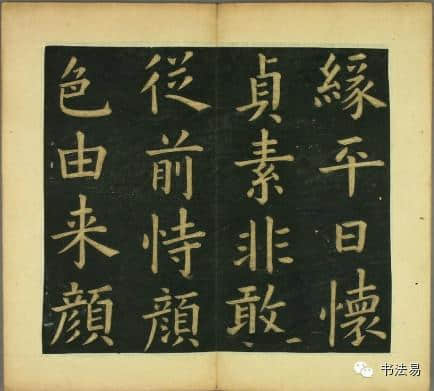 緣平日懷
貞素非敢
從前恃顔
色由来顔
书法易